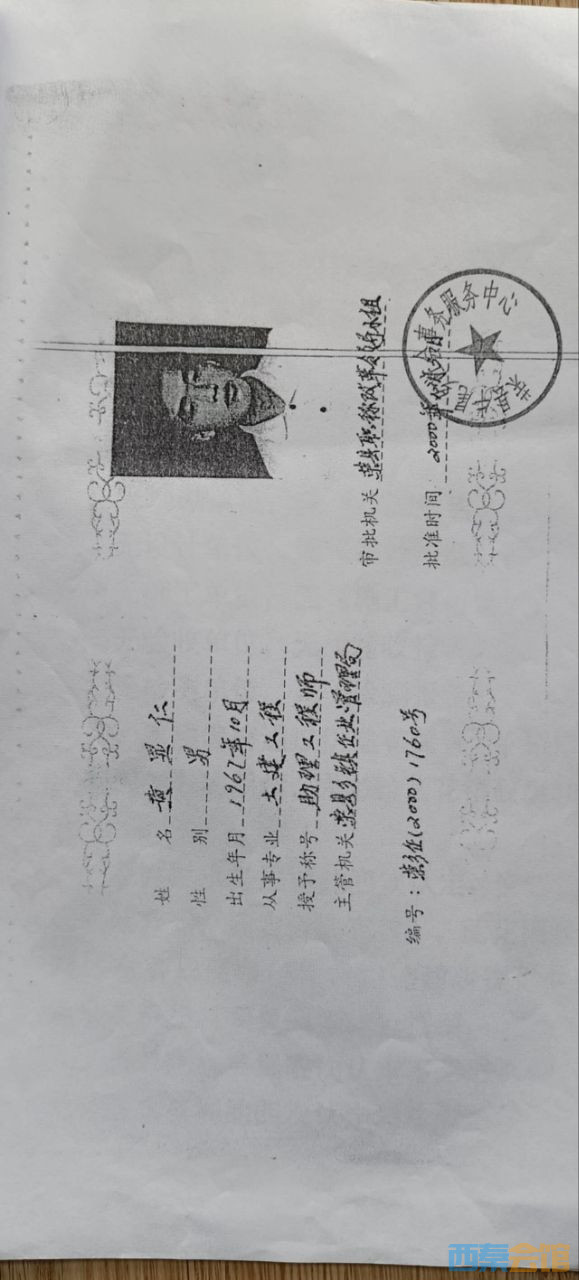 姓 名 黄显仁
性 别 男
出生年月 1967年10月
从事专业 土建工程
授予称号 助理工程师
主管机关 荣县乡镇企业管理局
编号：荣乡企(2000)1760号
审批机关 荣县职称改革领导小组
批准时间 2000年
事务服务中心
荣县